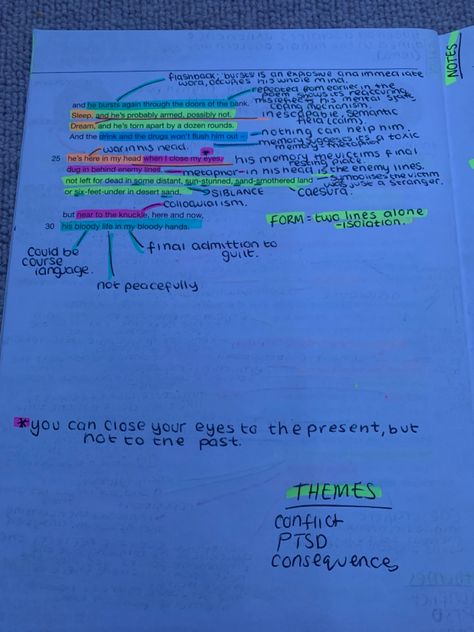 NOTES
flashback; bursts is an explosive and immediate
word, occupies his whole mind.
and he bursts again through the doors of the bank.
repeated from earlier in the
poem shows its reoccuring
Sleep, and he's probably armed, possibly not.
inescapable, semantic
field (calm)
coping mechanism.
Dream, and he's torn apart by a dozen rounds.
nothing can help him
And the drink and the drugs won't flush him out –
memory is a toxic
war in his head.
metaphor
25 he's here in my head when I close my eyes,
his memory the victims final
resting place
dug in behind enemy lines,
metaphor - in his head is the enemy lines.
not left for dead in some distant, sun-stunned, sand-smothered land
the victim
was just a stranger.
or six-feet-under in desert sand,
SIBLANCE
caesura.
colloquialism.
but near to the knuckle, here and now,
FORM = two lines alone
-isolation.
30 his bloody life in my bloody hands.
could be
course
language.
final admittion to
guilt.
not peacefully
*you can close your eyes to the present, but
not to the past.
THEMES
conflict
PTSD
consequences